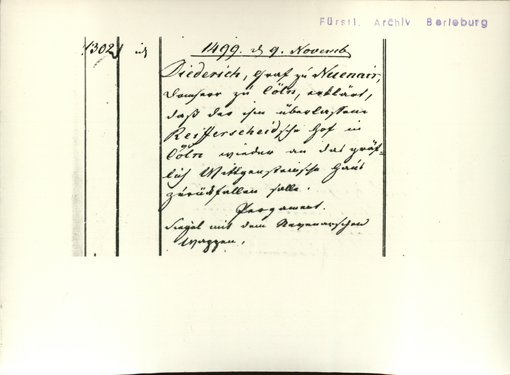 Fürstl. Archiv Berleburg
1302) id 1499. d 9. Novemb
Diederich, Graf zu Nuenair,
Domherr zu Cöln, erklärt,
daß der ihm überlassene
Reifferscheidsche Hof in
Cöln wieder an das gräf-
lich Wittgensteinische Haus
zurückfallen solle.
Pergament.
Siegel mit dem Nevenarschen
Wappen.